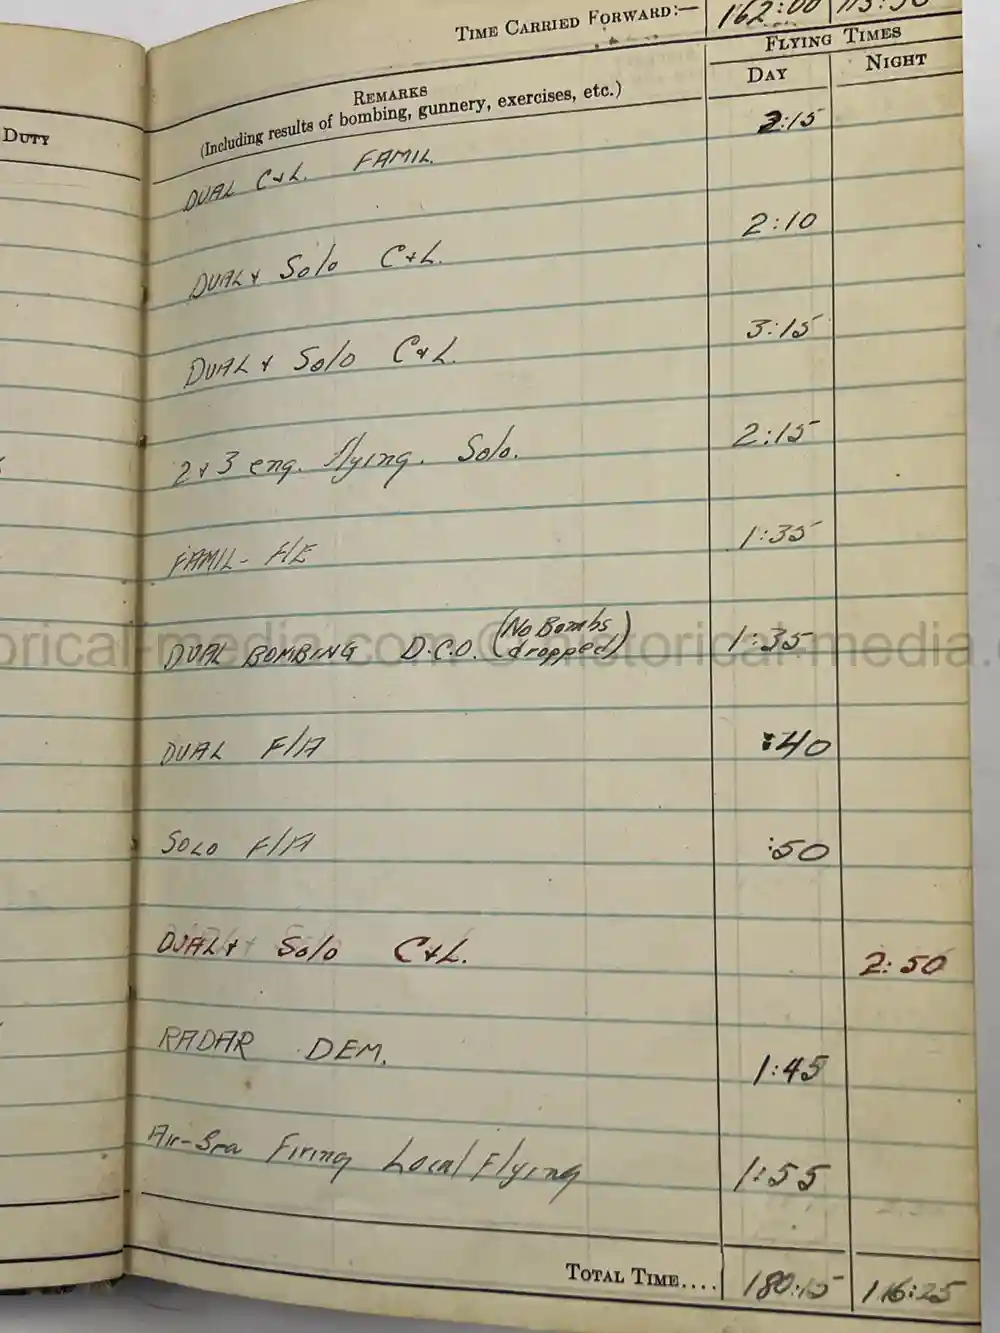 TIME CARRIED FORWARD:— 162:00
DUTY
REMARKS
(Including results of bombing, gunnery, exercises, etc.)
FLYING TIMES
DAY NIGHT
DUAL C+L. FAMIL. 2:15
DUAL + Solo C+L. 2:10
DUAL + Solo C+L. 3:15
2+3 eng. flying. Solo. 2:15
FAMIL- H/E 1:35
DUAL BOMBING D.C.O. (No Bombs dropped) 1:35
DUAL F/A :40
SOLO F/A :50
DUAL + Solo C+L. 2:50
RADAR DEM. 1:45
Air-Sea Firing Local Flying 1:55
TOTAL TIME.... 180:15 116:25
orical-media.com © historical-media.